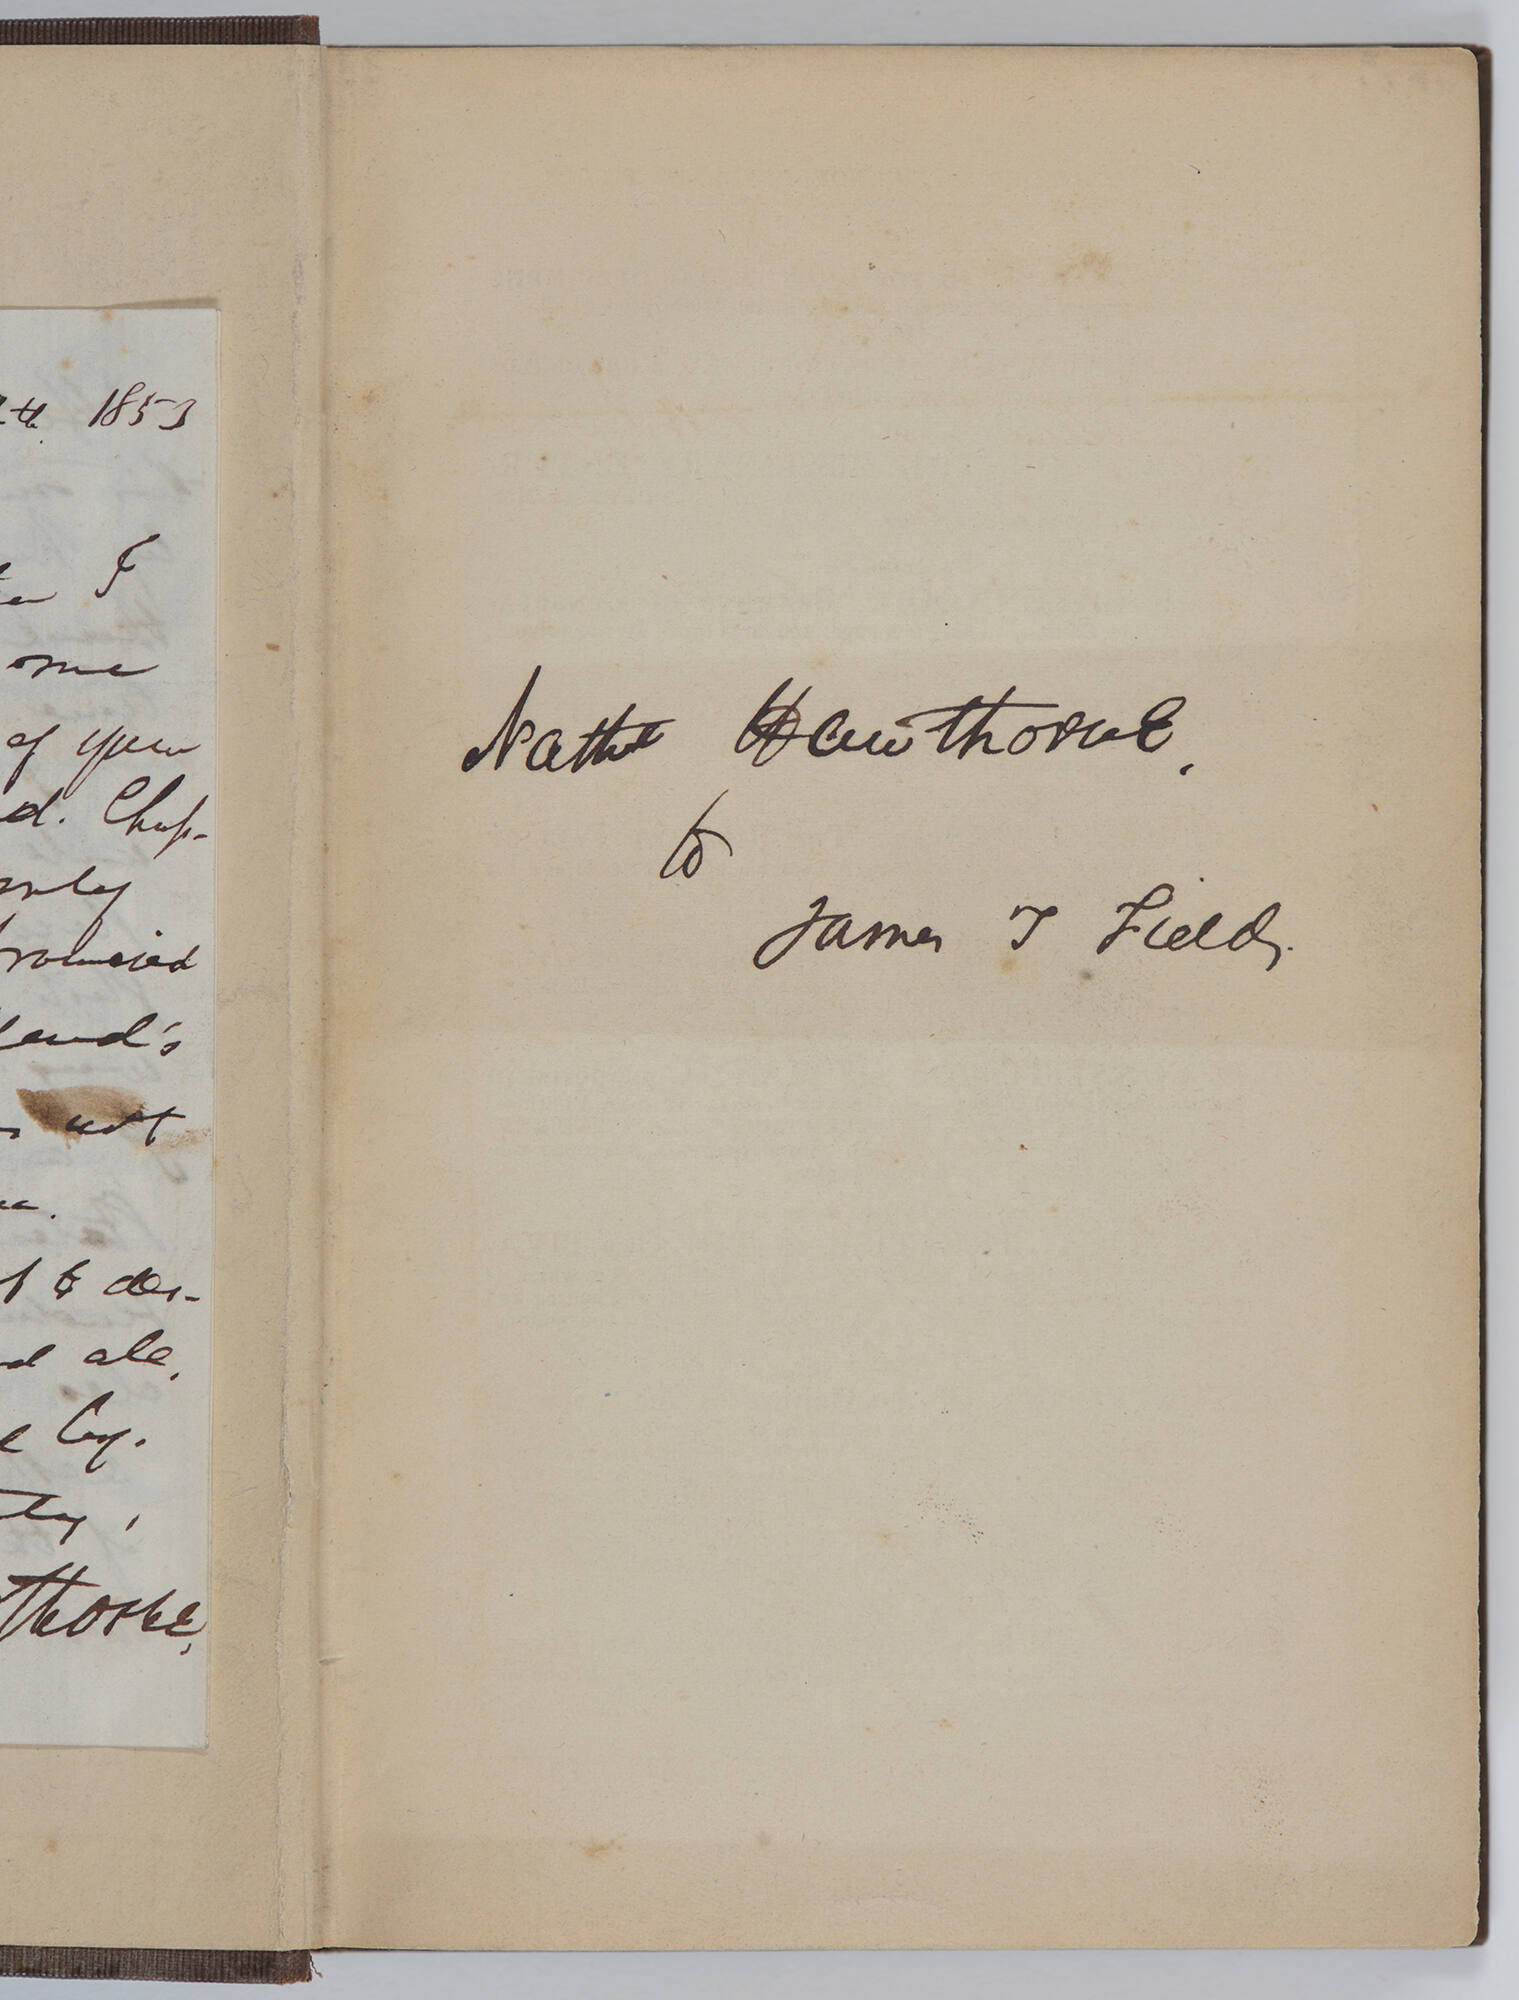 th. 1853
I
ome
of your
ed. Chap-
only
romised
land's
not
to des-
ale,
Cay.
thorne,
Nathl Hawthorne.
to
James T Fields.